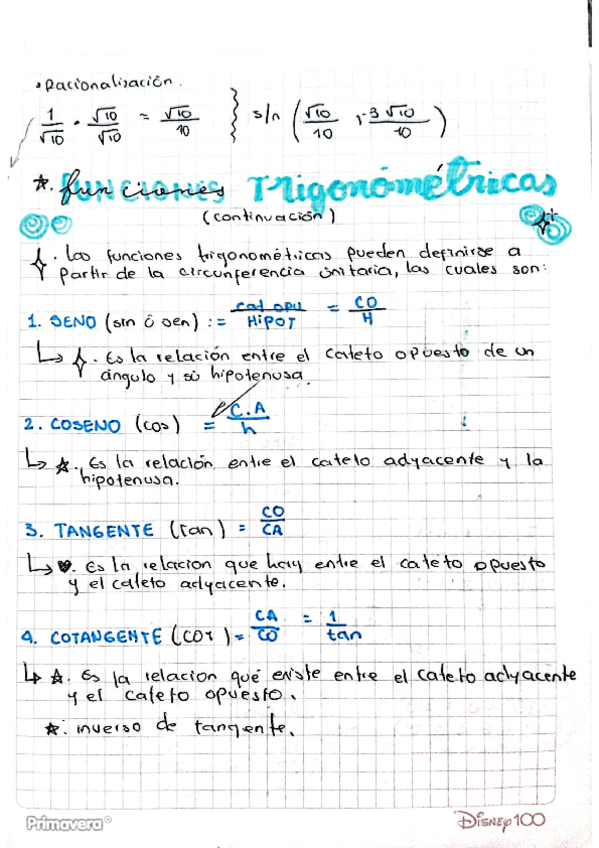 • Racionalización.
1/√10 • √10/√10 = √10/10 } s/n (√10/10, -3√10/10)
☆. funciones Trigonométricas
(continuación)
✧. Las funciones trigonométricas pueden definirse a
partir de la circunferencia unitaria, las cuales son:
1. SENO (sin ó sen) := cat opu/HIPOT = CO/H
↳ ✧. Es la relación entre el cateto opuesto de un
ángulo y su hipotenusa.
2. COSENO (cos) = C.A/h
↳ ☆. Es la relación entre el cateto adyacente y la
hipotenusa.
3. TANGENTE (Tan) = CO/CA
↳ ♥. Es la relacion que hay entre el cateto opuesto
y el cateto adyacente.
4. COTANGENTE (COT) = CA/CO = 1/tan
↳ ☆. Es la relacion qué existe entre el cateto adyacente
y el cateto opuesto.
☆. inverso de tangente.
Primavera® Disney100